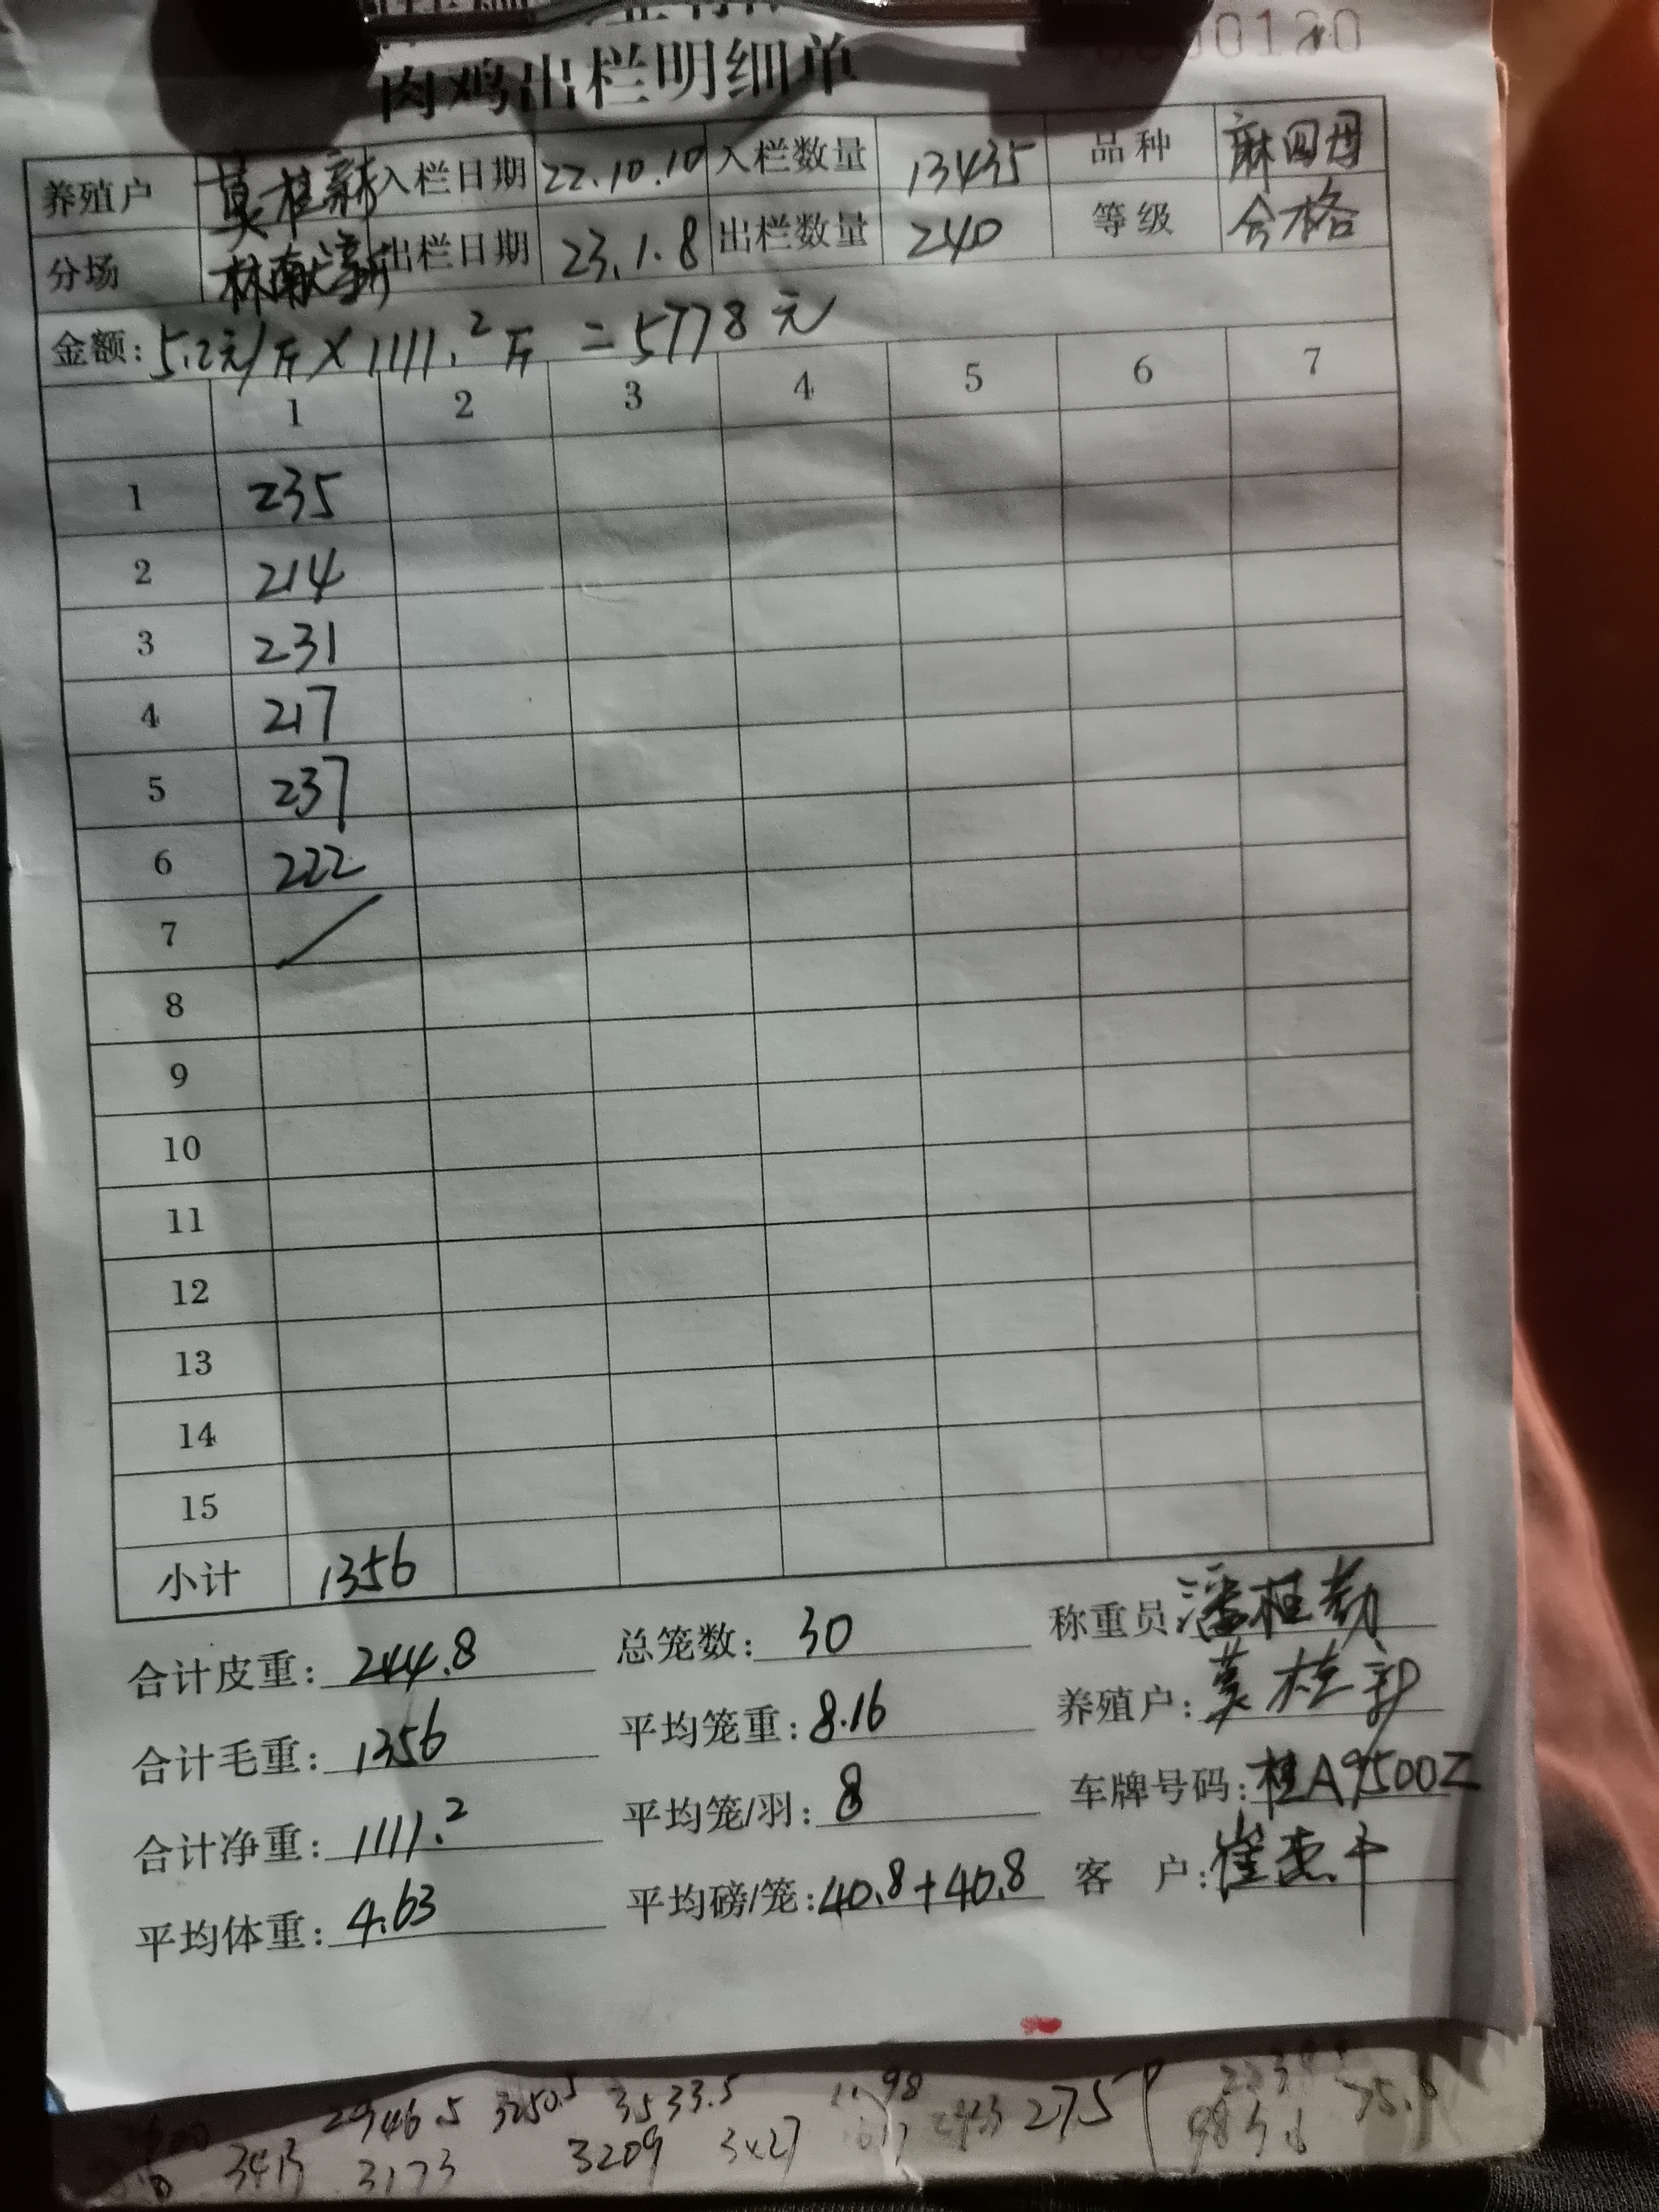 肉鸡出栏明细单
养殖户 莫桂新 入栏日期 22.10.10 入栏数量 13435 品种 麻四母
分场 出栏日期 23.1.8 出栏数量 240 等级 合格
金额: 5.2元/斤×1111.2斤=5778元
1 2 3 4 5 6 7
1 235
2 214
3 231
4 217
5 237
6 222
7
8
9
10
11
12
13
14
15
小计 1356
合计皮重: 244.8 总笼数: 30 称重员
合计毛重: 1356 平均笼重: 8.16 养殖户: 莫桂新
合计净重: 1111.2 平均笼/羽: 8 车牌号码: 桂A9500Z
平均体重: 4.63 平均磅/笼: 40.8+40.8 客户:
2946.5 3250.5 3533.5 275
3413 3173 3209 3×27